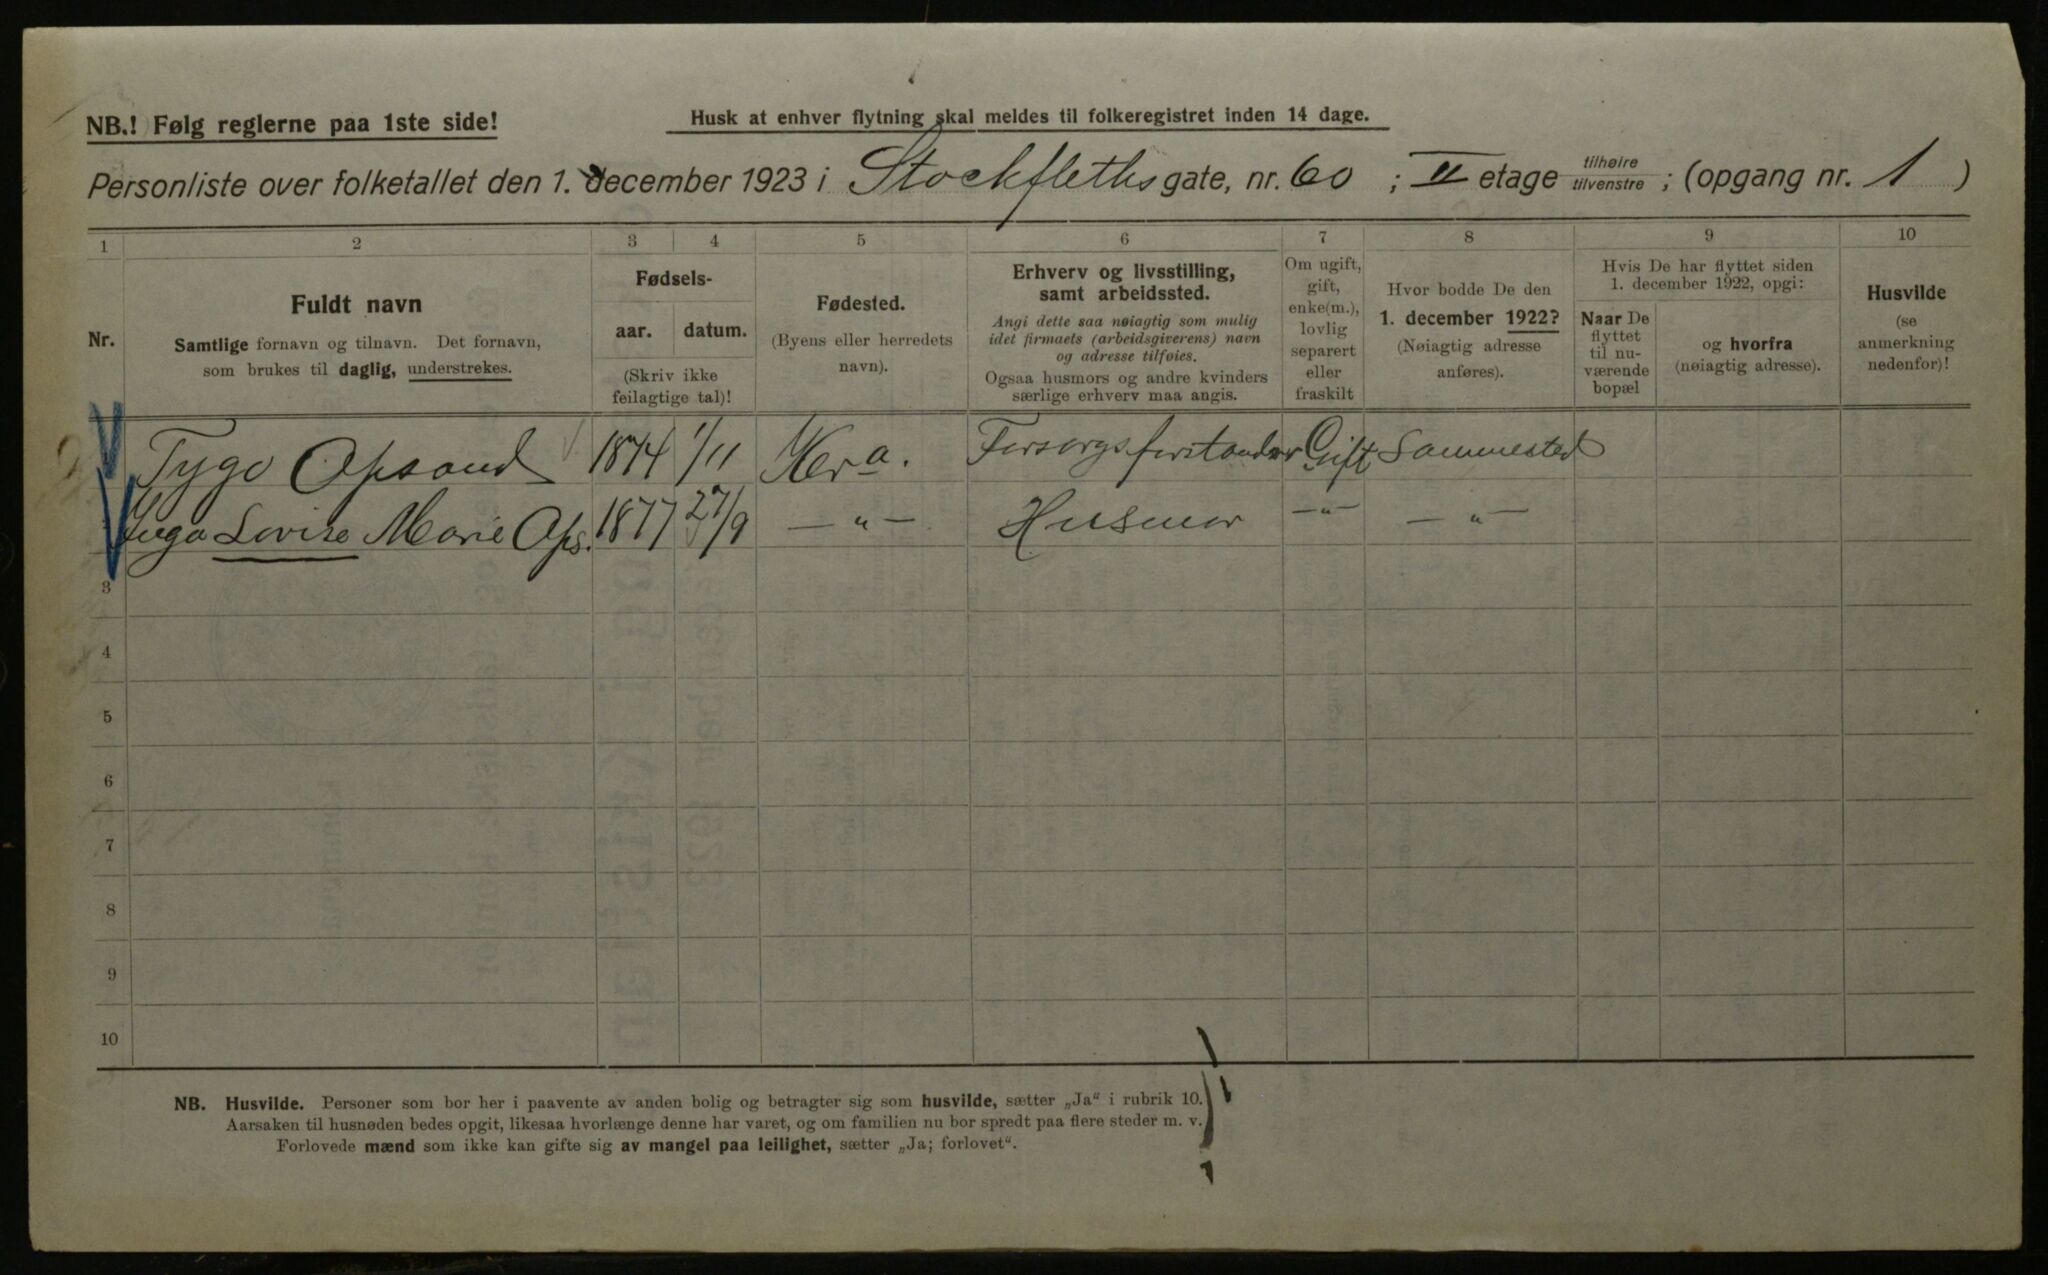 NB.! Følg reglerne paa 1ste side!
Husk at enhver flytning skal meldes til folkeregistret inden 14 dage.
Personliste over folketallet den 1. december 1923 i Stockfleths gate, nr. 60 ; II etage tilhøire tilvenstre ; (opgang nr. 1 )
1 2 3 4 5 6 7 8 9 10
Nr.
Fuldt navn
Samtlige fornavn og tilnavn. Det fornavn,
som brukes til daglig, understrekes.
Fødsels-
aar. datum.
(Skriv ikke
feilagtige tal)!
Fødested.
(Byens eller herredets
navn).
Erhverv og livsstilling,
samt arbeidssted.
Angi dette saa nøiagtig som mulig
idet firmaets (arbeidsgiverens) navn
og adresse tilføies.
Ogsaa husmors og andre kvinders
særlige erhverv maa angis.
Om ugift,
gift,
enke(m.),
lovlig
separert
eller
fraskilt
Hvor bodde De den
1. december 1922?
(Nøiagtig adresse
anføres).
Hvis De har flyttet siden
1. december 1922, opgi:
Naar De
flyttet
til nu-
værende
bopæl
og hvorfra
(nøiagtig adresse).
Husvilde
(se
anmerkning
nedenfor)!
Tygo Opsand 1874 1/11 Kra. Forsorgsforstander Gift Sammested
Inga Lovise Marie Ops. 1877 27/9 — „ — Husmor — „ — — „ —
3
4
5
6
7
8
9
10
NB. Husvilde. Personer som bor her i paavente av anden bolig og betragter sig som husvilde, sætter „Ja“ i rubrik 10.
Aarsaken til husnøden bedes opgit, likesaa hvorlænge denne har varet, og om familien nu bor spredt paa flere steder m. v.
Forlovede mænd som ikke kan gifte sig av mangel paa leilighet, sætter „Ja; forlovet“.